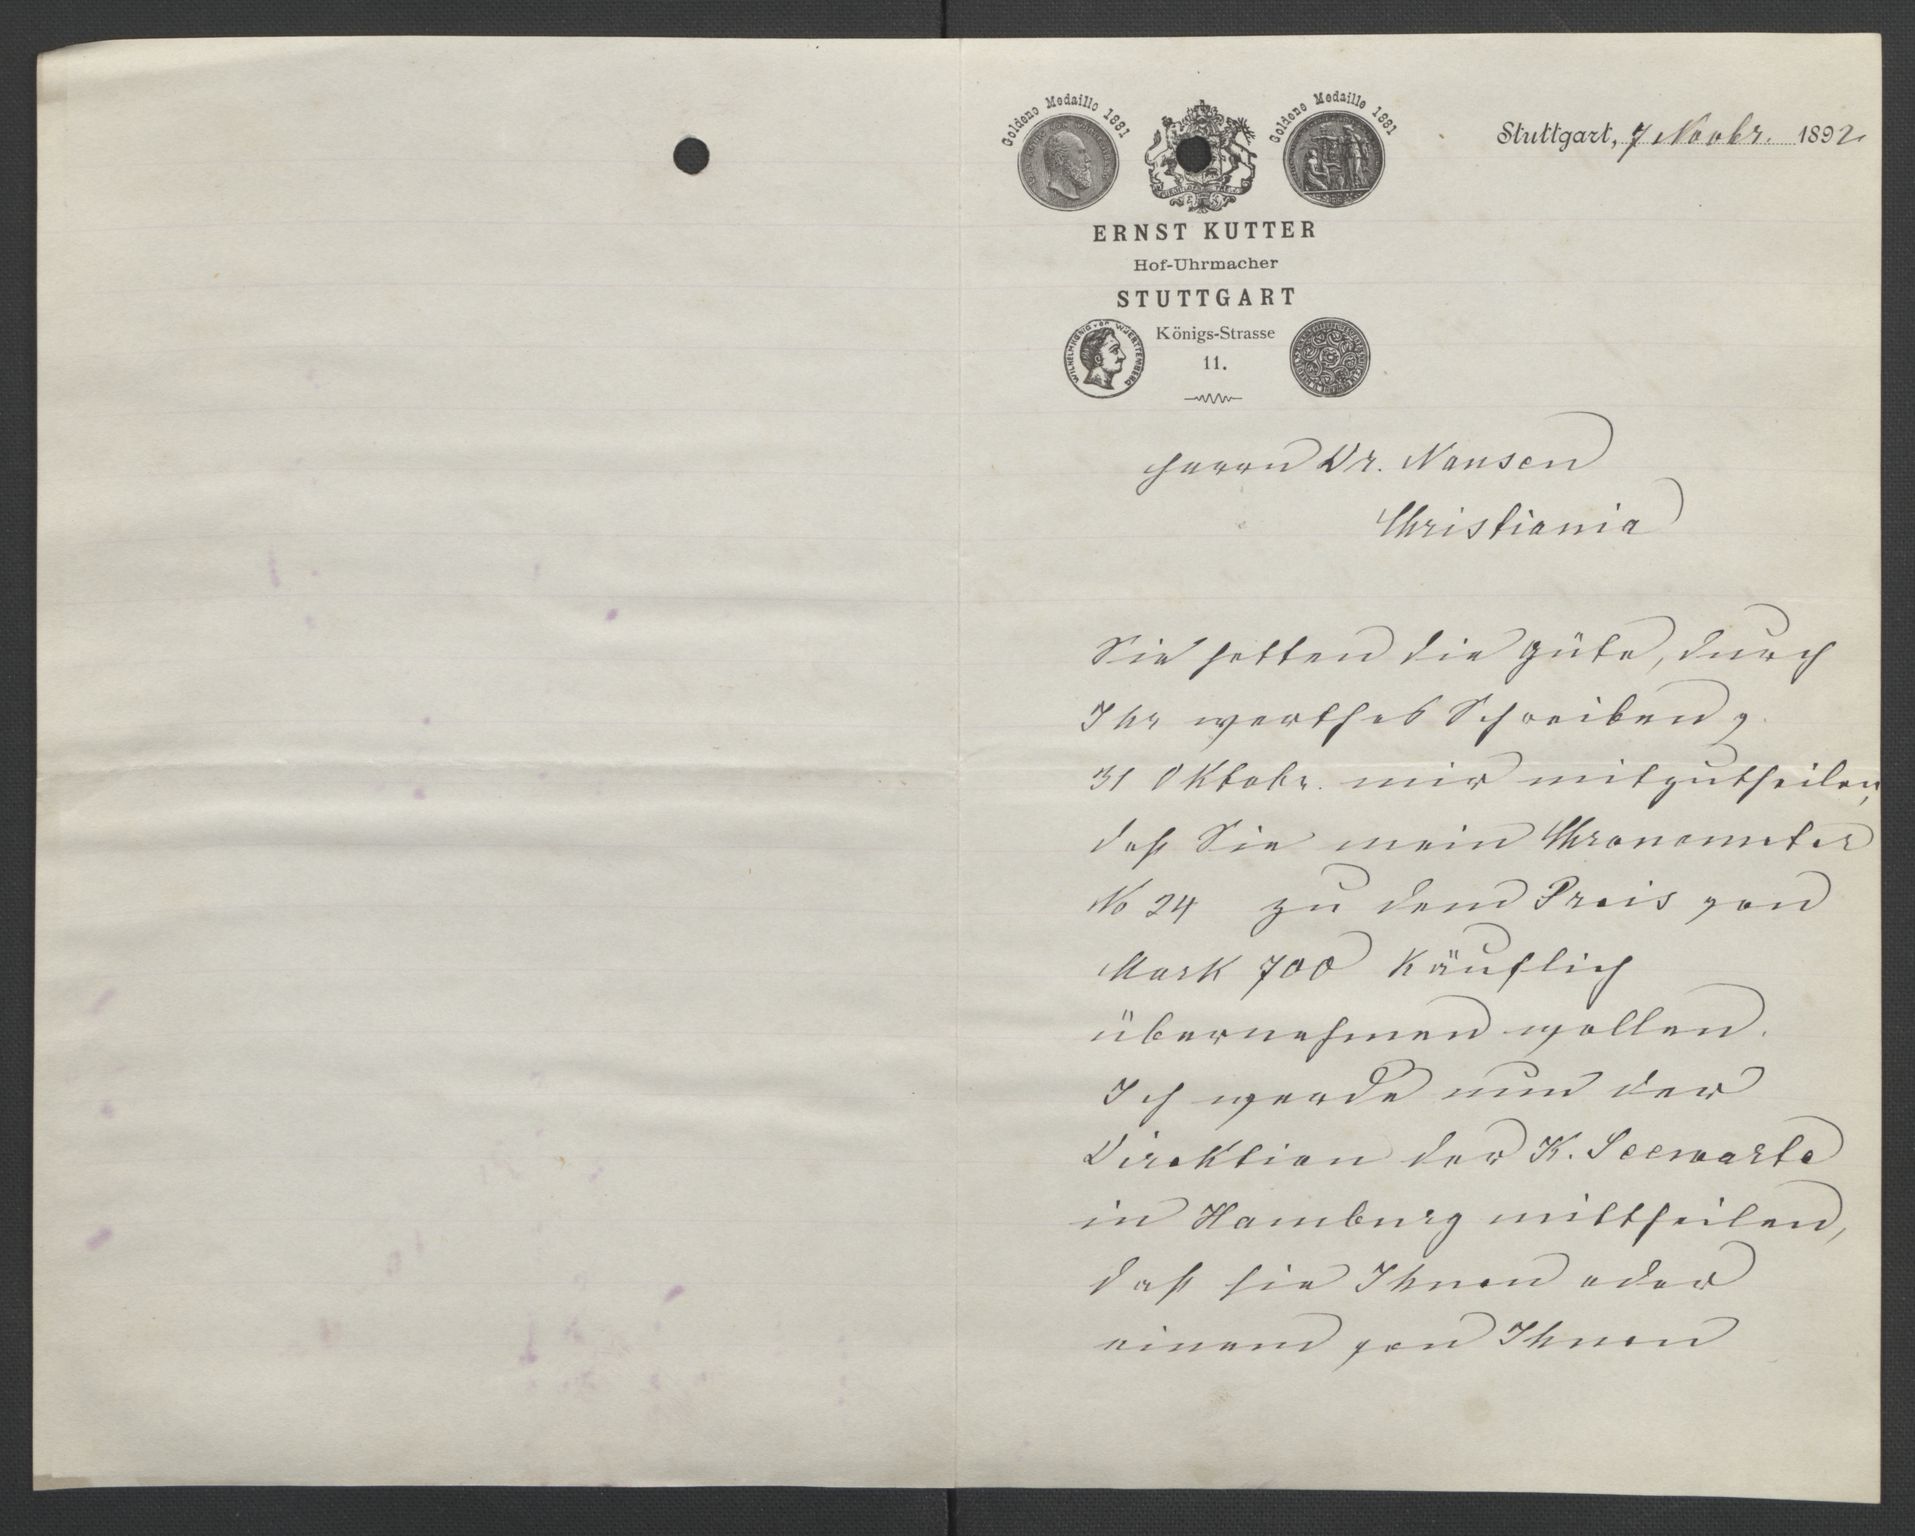 Goldene Medaille 1881
Goldene Medaille 1881
Stuttgart, 7 Novbr. 1892.
ERNST KUTTER
Hof-Uhrmacher
STUTTGART
WILHELM KOENIG v. WUERTTEMBERG
Königs-Strasse
11.
Herrn Dr. Nansen
Christiania
Sie hatten die Güte, durch
Ihr werthes Schreiben v.
31 Oktobr. mir mitzutheilen,
daß Sie mein Chronometer
No 24 zu dem Preis von
Mark 700 käuflich
übernehmen wollen.
Ich werde nun der
Direktion der K. Seewarte
in Hamburg mittheilen,
daß sie Ihnen oder
einem von Ihnen